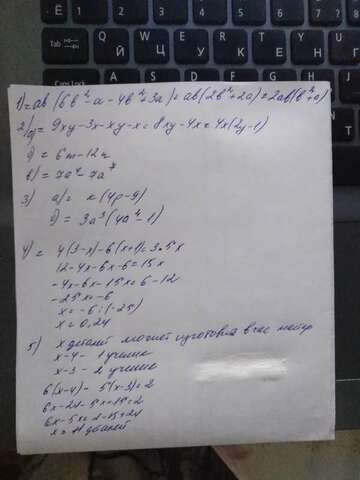 Tab
Caps Lock
Й
Ц
У
К
Е
Н
Ф
Ы
В
А
П
1) = ab (6b² - a - 4b² + 3a) = ab(2b² + 2a) = 2ab(b² + a)
2) а) = 9xy - 3x - xy - x = 8xy - 4x = 4x(2y - 1)
б) = 6m - 12n
в) = 7a² - 7a⁷
3) а) = x(4p - 9)
б) = 3a³(4a² - 1)
4) = 4(3 - x) - 6(x + 1) = 3·5x
12 - 4x - 6x - 6 = 15x
-4x - 6x - 15x = 6 - 12
-25x = -6
x = -6 : (-25)
x = 0,24
5) x деталей может изготовить в час
x - 4 - 1 ученик
x - 3 - 2 ученик
6(x - 4) - 5(x - 3) = 2
6x - 24 - 5x + 15 = 2
6x - 5x = 2 - 15 + 24
x = 11 деталей